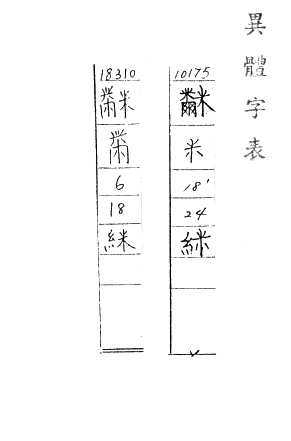 異體字表
10175
米
18'
24
䋛
18310
6
18
䋛